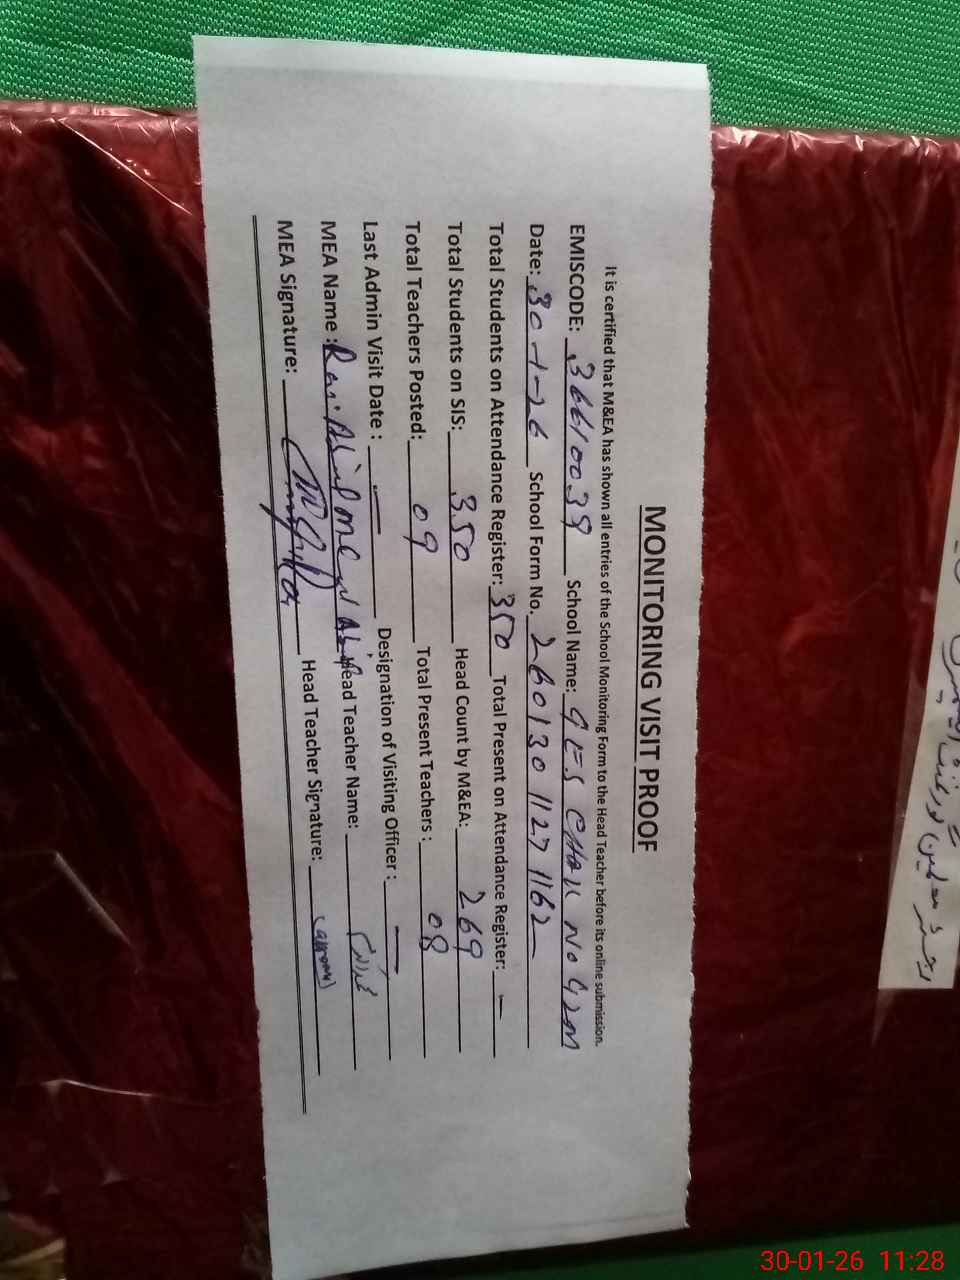 MONITORING VISIT PROOF
It is certified that M&EA has shown all entries of the School Monitoring Form to the Head Teacher before its online submission.
EMISCODE: 36610039 School Name: GES CHAK NO 42M
Date: 30-1-26 School Form No. 260130 1127 1162
Total Students on Attendance Register: 350 Total Present on Attendance Register: —
Total Students on SIS: 350 Head Count by M&EA: 269
Total Teachers Posted: 09 Total Present Teachers : 08
Last Admin Visit Date : — Designation of Visiting Officer : —
MEA Name : Head Teacher Name:
MEA Signature: Head Teacher Signature:
30-01-26 11:28